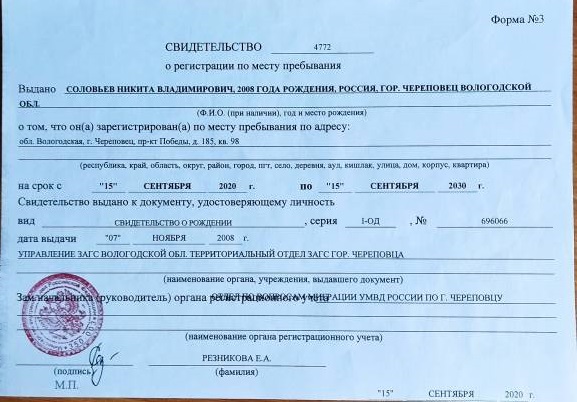 Форма №3
СВИДЕТЕЛЬСТВО 4772
о регистрации по месту пребывания
Выдано СОЛОВЬЕВ НИКИТА ВЛАДИМИРОВИЧ, 2008 ГОДА РОЖДЕНИЯ, РОССИЯ, ГОР. ЧЕРЕПОВЕЦ ВОЛОГОДСКОЙ
ОБЛ.
(Ф.И.О. (при наличии), год и место рождения)
о том, что он(а) зарегистрирован(а) по месту пребывания по адресу:
обл. Вологодская, г. Череповец, пр-кт Победы, д. 185, кв. 98
(республика, край, область, округ, район, город, пгт, село, деревня, аул, кишлак, улица, дом, корпус, квартира)
на срок с "15" СЕНТЯБРЯ 2020 г. по "15" СЕНТЯБРЯ 2030 г.
Свидетельство выдано к документу, удостоверяющему личность
вид СВИДЕТЕЛЬСТВО О РОЖДЕНИИ , серия I-ОД , № 696066
дата выдачи "07" НОЯБРЯ 2008 г.
УПРАВЛЕНИЕ ЗАГС ВОЛОГОДСКОЙ ОБЛ. ТЕРРИТОРИАЛЬНЫЙ ОТДЕЛ ЗАГС ГОР. ЧЕРЕПОВЦА
(наименование органа, учреждения, выдавшего документ)
Зам.начальника (руководитель) органа регистрационного учета
ОТДЕЛ ПО ВОПРОСАМ МИГРАЦИИ УМВД РОССИИ ПО Г. ЧЕРЕПОВЦУ
(наименование органа регистрационного учета)
РЕЗНИКОВА Е.А.
(подпись) (фамилия)
М.П.
"15" СЕНТЯБРЯ 2020 г.